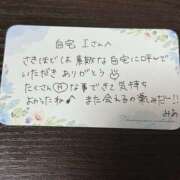 自宅 Iさんへ
さきほどは素敵な自宅に呼んで
いただき ありがとう
たくさんHな事できて気持ち
よかったね♪
また会えるの楽しみだー!!
みあ